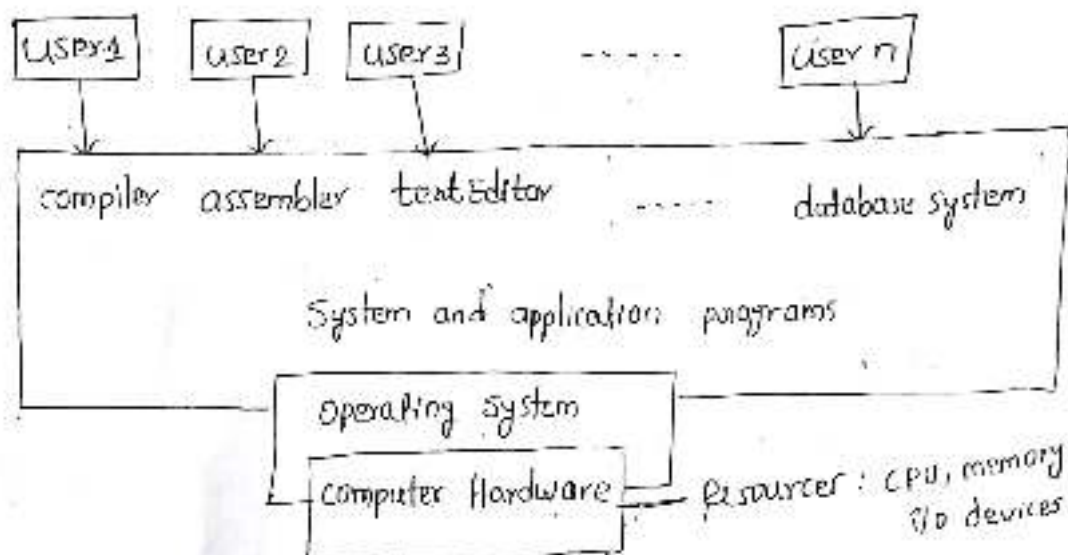 User1 user2 user3 ------- User n
compiler assembler textEditor ------- database system
System and application programs
operating system
computer Hardware Resources : CPU, memory
I/O devices